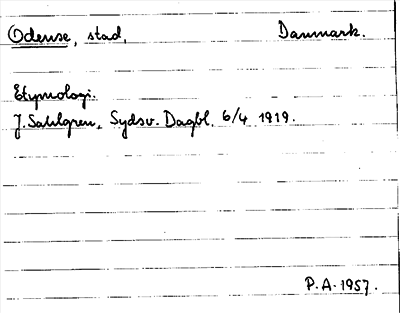 Odense, stad, Danmark.
Etymologi.
J. Sahlgren, Sydsv. Dagbl. 6/4 1919.
P.A. 1957.